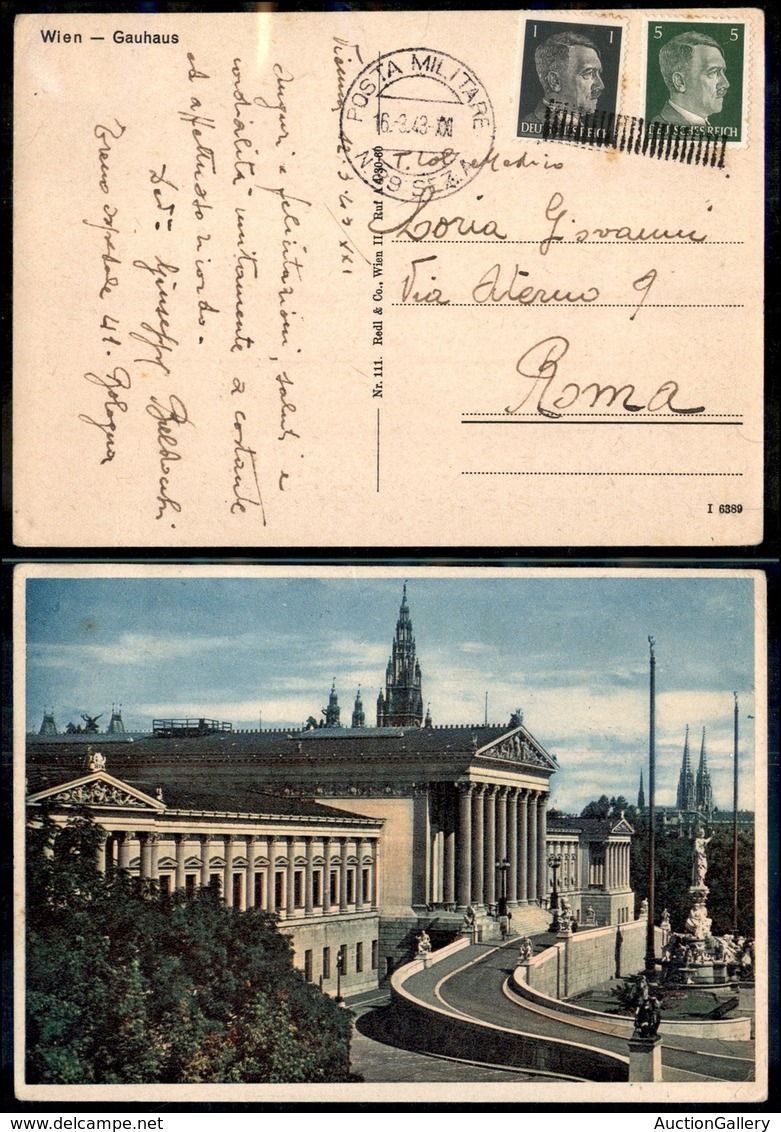 Wien — Gauhaus
1 1
DEUTSCHES REICH
5 5
DEUTSCHES REICH
POSTA MILITARE
16.-3.43-XXI
N. 99 SEZ. A
Vienna 12.3.43 XXI
Auguri e felicitazioni, saluti e
cordialità unitamente a costante
ed affettuoso ricordo.
Giuseppe
Treno ospedale 41. Bologna
Nr. 111. Redl & Co., Wien II, Ruf A 030-60
T. Col. Medico
Loria Giovanni
Via Aterno 9
Roma
I 6389
AuctionGallery